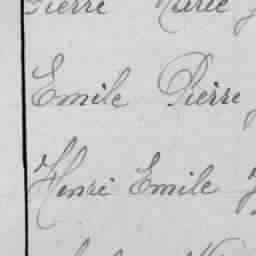 Pierre Marie
Emile Pierre
Henri Emile